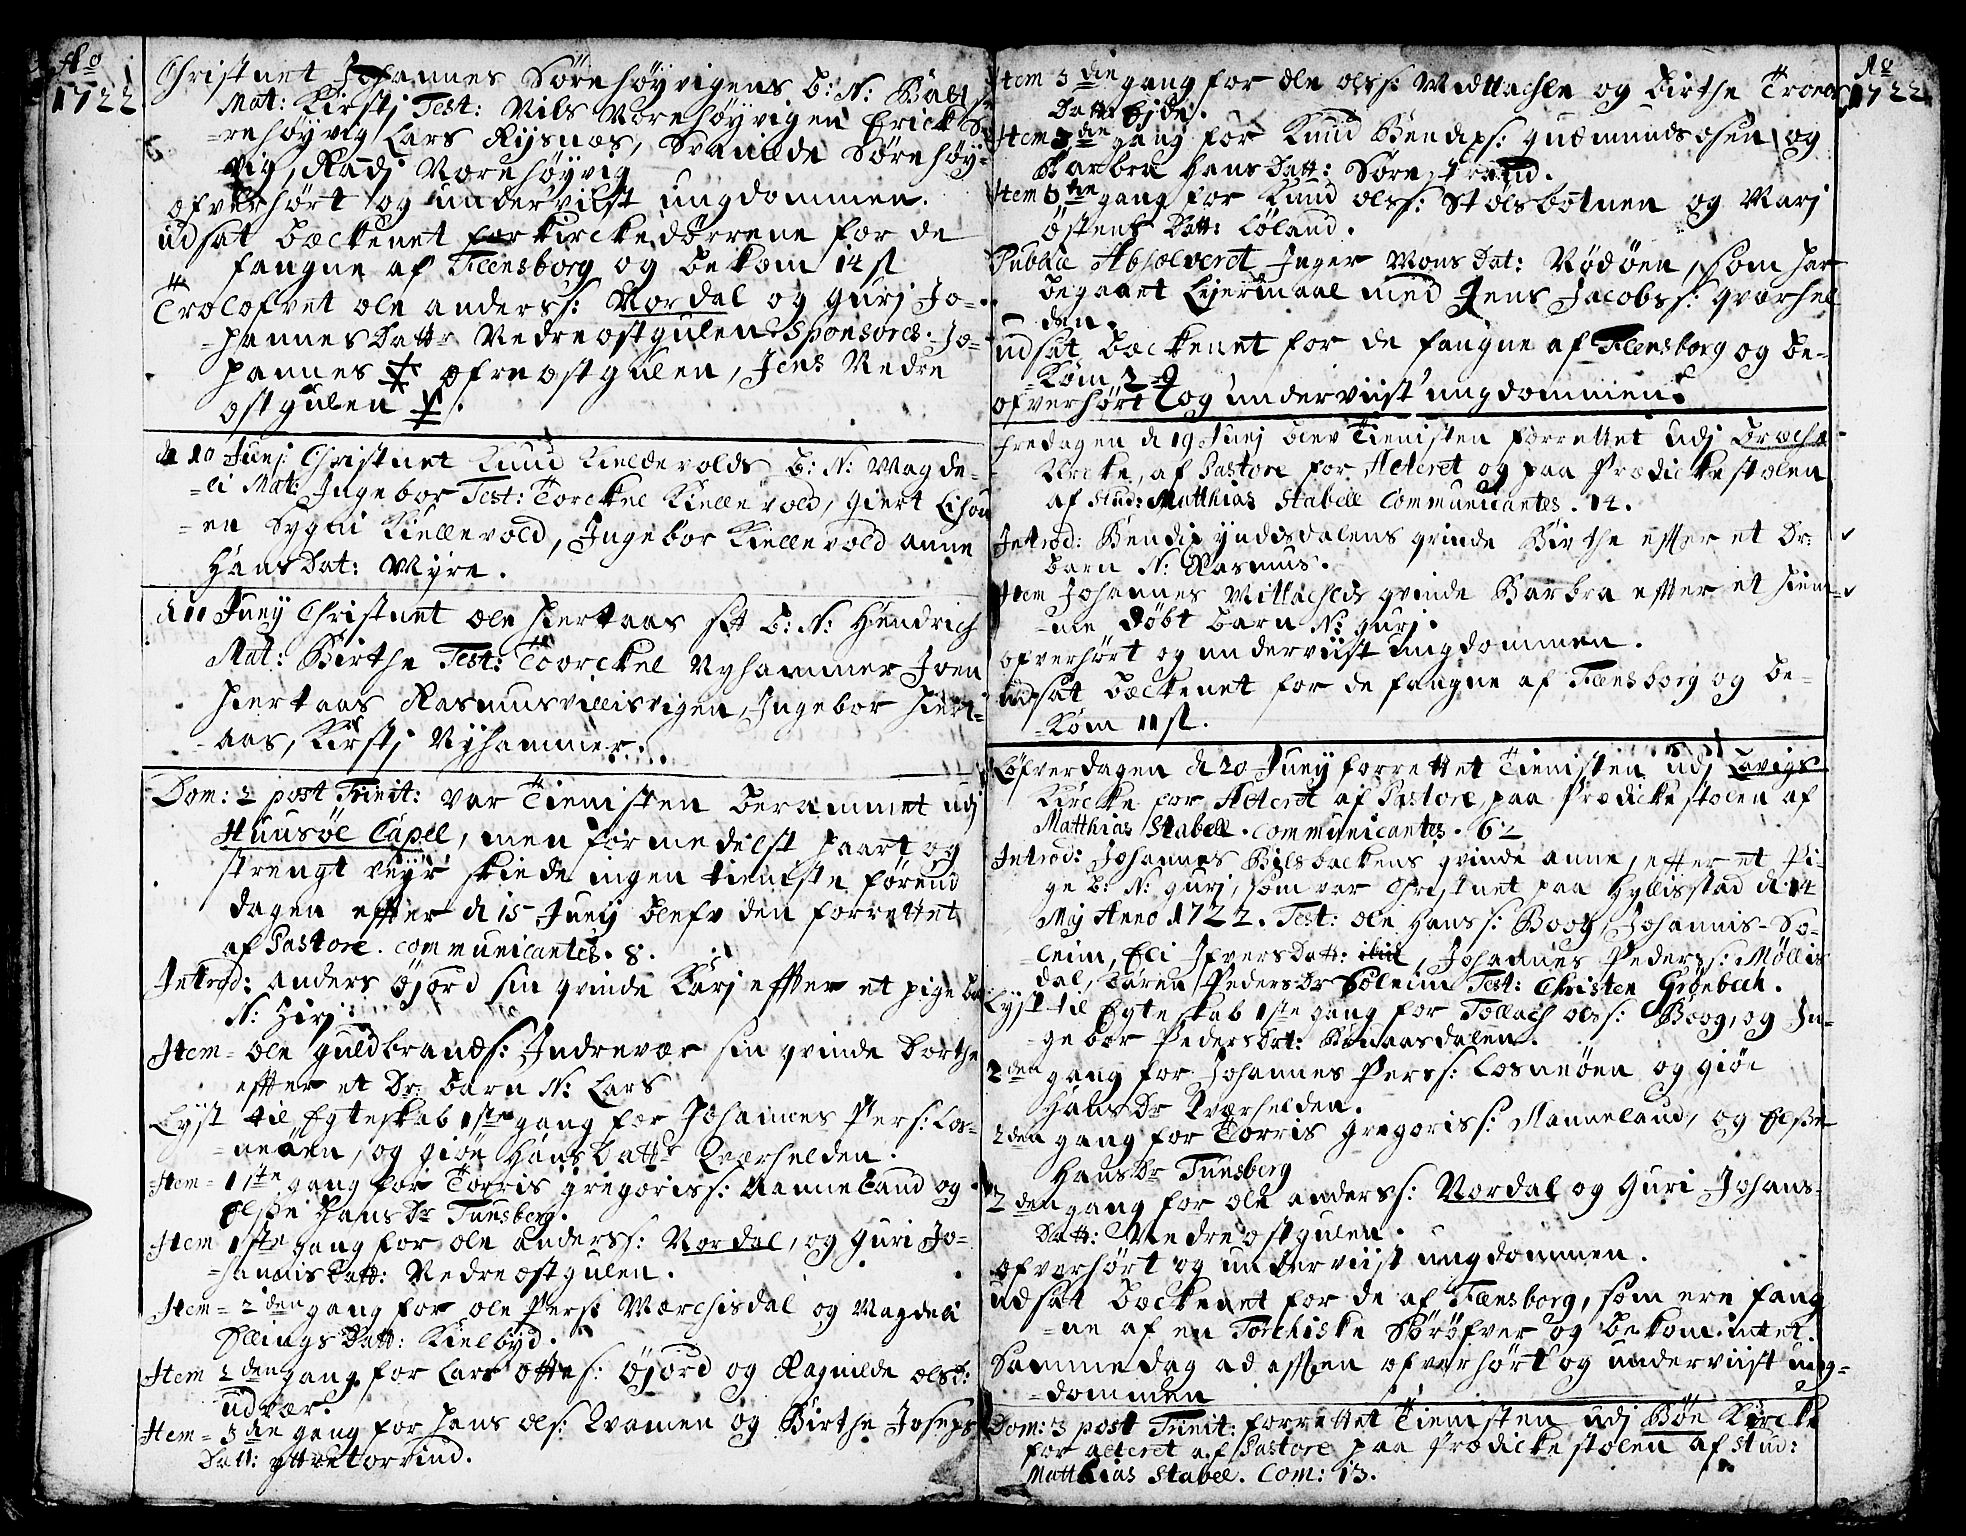 Ao
1722
Christnet Johannes Sørehøyvigens b: N: Baltser
Mat: Kirstj Test: Nils Norehøyvigen Erick Sø-
-rehøyvig Lars Rysnæs, Svanilde Sørehøy-
vig, Radj Norehøyvig
ofverhørt og underviist ungdommen.
udsat Beckenet for kirckedørrene for de
fangne af Flensborg og bekom 14 s
Trolofvet ole anderss: Nordal og gurj Jo-
-hannesDattr Nedreostgulen Sponsores. Jo-
hannes ofreostgulen, Jens Nedre
ostgulen
d 10 Junj: Christnet Knud Kieldevolds b: N: Magde-
-li Mat: Ingebor Test: Torckel Kiellevold, giert
-en Sygni Kiellevold, Ingebor Kiellevold anne
HansDat: Myre.
d 11 Junj Christnet ole hertaas b: N: Hendrich
Mat: Birthe Test: Toorckel Nyhammer Joen
hertaas Rasmus villisvigen, Ingebor hert-
-aas, Kirstj Nyhammer.
Dom: 2 post Trinit: var Tienisten berammet udj
Huusøe Capell, men formedelst haart og
strengt veyr skiede ingen tieniste førend
dagen effter d 15 Junj blefv den forrettet
af Pastore. communicantes. 8.
Introd: anders øjord sin qvinde Karj effter et pige ba
N: Zirj:
Item = ole guldbrands: Indrevær sin qvinde Dorthe
effter et Dr: barn N: Lars
Lyst til Egteskab 1ste gang for Johannes Pers: Los-
-neøen, og giøe HansDattr Qværhelden.
Item = 1ste gang for Torris gregoriss: Manneland og
Elsße HansDr Tunsberg.
Item 1ste gang for ole anderss: Nordal, og Guri Jo-
-hannisDatt: Nedreostgulen.
Item = 2den gang for ole Pers: Mærchisdal og Magdeli
EllingsDatt: Kielbyd.
Item 2den gang for Lars ottes: øjord og Ragnilde olsD:
udvær.
Item = 3die gang for hans ols: Qvamen og Birthe Joseps
Datt: yttretorvind.
Item 3die gang for ole olss: Midttachle og birthe Troens
Datt: Ejde.
Item 3die gang for Knud Bendixs: gudmundsøsen og
Barbra HansDatt: Sørestrand.
Item 3tie gang for Knud olss: Stølsbotnen og Marj
østensDatt: Løland.
Publice Absolveret Inger MonsDat: Rødøen, som har
begaaet Leyermaal med Jens Jacobss: qværhel-
den.
udsat Beckenet for de fangne af Flensborg og be-
-kom
ofverhørt og underviist ungdommen.
Fredagen d 19 Junj blev Tienisten forrettet udj
Kircke, af Pastore for Alteret og paa Prædickestolen
af Stud: Matthias Stabell Communicantes. 14.
Introd: Bendix ynddsdalens qvinde Birthe effter et Dr:
barn N: Rasmus.
Item Johannes Mittachlds qvinde Barbra effter et hiem-
-me døbt barn N: gurj.
ofverhørt og underviist ungdommen.
udsat beckenet for de fangne af Flensborg og be-
-kom 11 s.
Løfverdagen d 20 Junj forrettet Tienisten udj Lavigs
Kircke for Alteret af Pastore paa Prædickestolen af
Matthias Stabell. communicantes. 62
Introd: Johannes Bilsbackens qvinde anne, effter et Pi-
ge b: N: gurj, som var Christnet paa Hyllisstad d. 14
Mij Anno 1722. Test: ole Hanss: Boog Johannis-So-
-leim, Eli IfversDatt: ibid, Johannes Pederss: Møllis
dal, Karen PedersDr Soleim Test: Christen Grønbech.
Lyst til Egteskab 1ste gang for Tollach olss: Boog, og In-
-gebor PedersDt: Kunaasdalen.
2den gang for Johannes Perss: Losneøen og giøe
HansDr Qværhelden.
2den gang for Torris gregoriss: Manneland, og Elsße
HansDr Tunsberg
2den gang for ole anderss: Nordal og Guri Johans-
Datt: Nedreostgulen.
ofverhørt og underviist ungdommen.
udsat beckenet for de af Flensborg, som ere fang
-ne af en Torchiske Sørøfver og bekom intet.
Samme dag ad afften ofverhørt og underviist ung-
-dommen
Dom: 3 post Trinit: forrettet Tienisten udj Bøe Kircke
for alteret af Pastore paa Prædickestolen af Stud:
Matthias Stabell. Com: 13.
Ao
1722